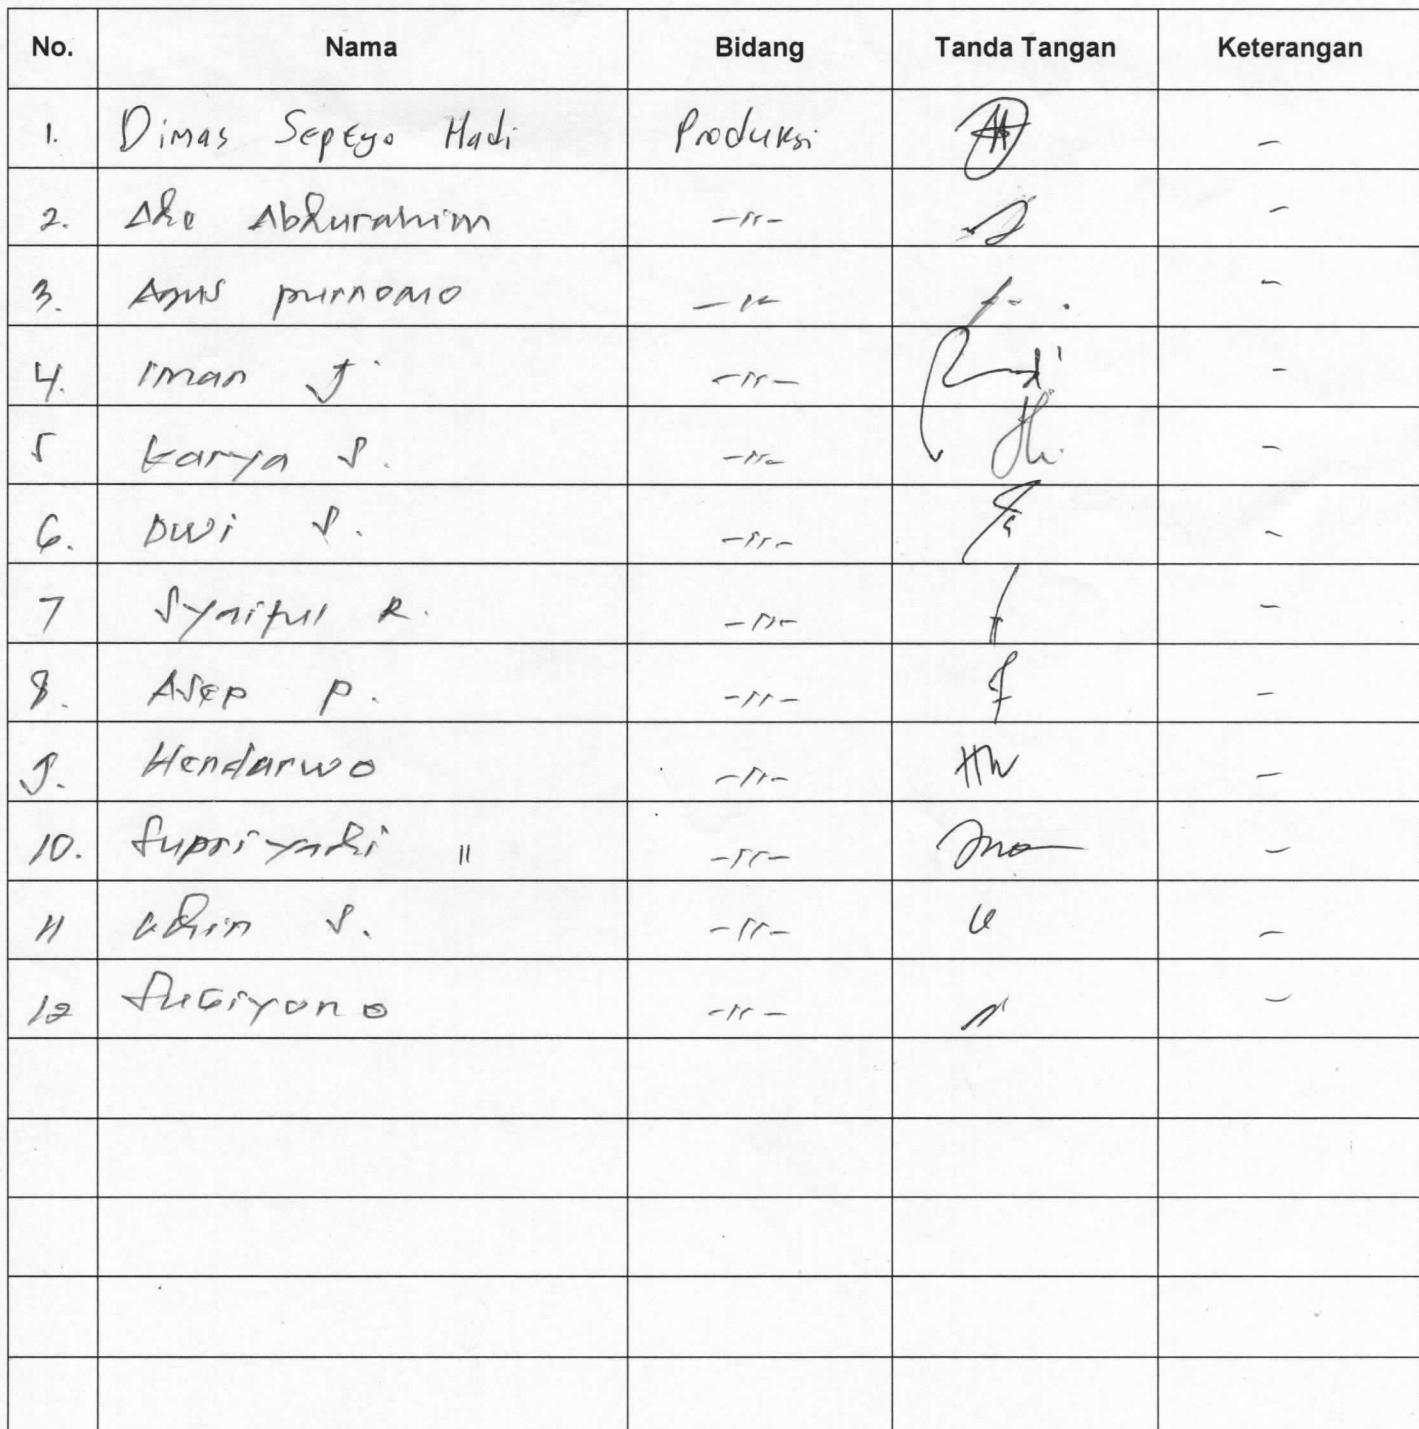 No. Nama Bidang Tanda Tangan Keterangan
1. Dimas Septyo Hadi Produksi -
2. Ade Abdurahim -"- -
3. Agus purnomo -"- -
4. iman J -"- -
5 karya S. -"- -
6. DWi S. -"- -
7 Syaiful R. -"- -
8. ASEP P. -"- -
9. Hendarwo -"- -
10. Supriyadi II -"- -
11 udin S. -"- -
12 SuGiyono -"- -